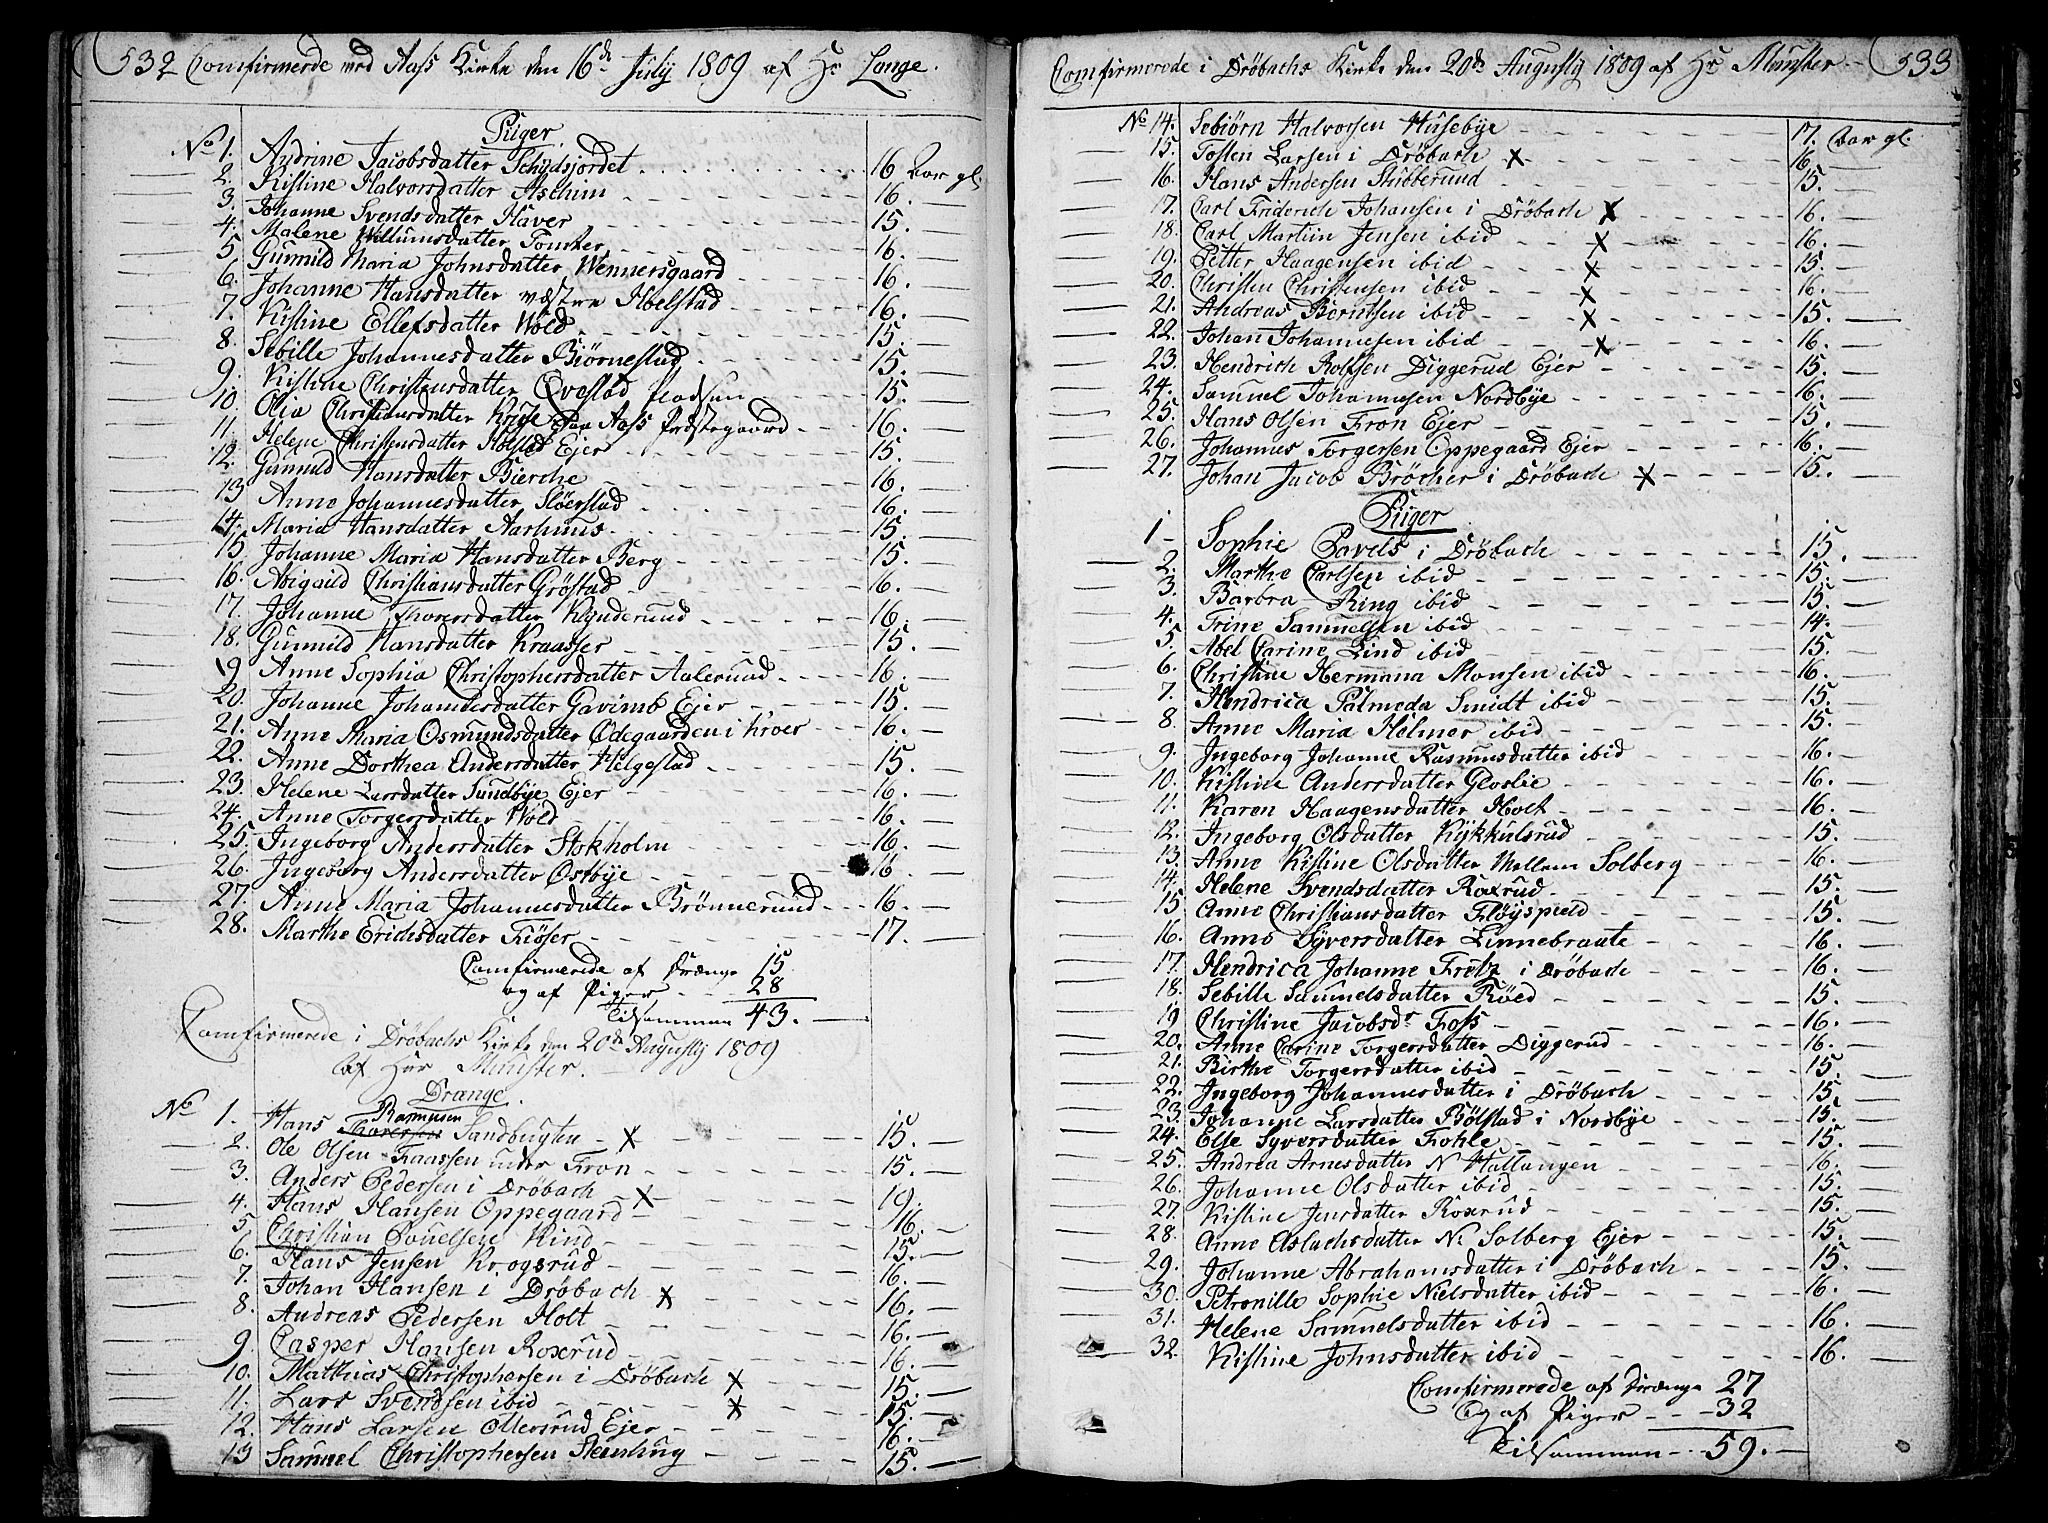 532 Comfirmerede ved Aass Kirke den 16de July 1809 af Hr Lange.
Piger
No 1. Andrine Jacobsdatter Schydsjordet 16 Aar gl.
2. Kistine Halvorsdatter Aschim 16.
3. Johanne Svendsdatter Haver 15.
4. Malene Willumsdatter Tomter 16.
5. Gunnild Maria Johnsdatter Wennersgaard 16.
6. Johanne Hansdatter væstre Ibelstad 16.
7. Kistine Ellefsdatter Wold 15.
8. Sebille Johannesdatter Biørnestad 15.
9. Kistine Christensdatter Qvestad Pladsen 15.
10. Olia Christiansdatter Krise paa Aass Præstegaard 16.
11. Helene Christensdatter Holstad Ejer 15.
12. Gunnild Hansdatter Bierche 16.
13 Anne Johannesdatter Sløerstad 16.
14. Maria Hansdatter Aarhuus 15.
15. Johanne Maria Hansdatter Berg 15.
16. Abigaild Christiansdatter Grøstad 16.
17. Johanne Thorersdatter Kynderuud 16.
18. Gunnild Hansdatter Kraasser 15.
19 Anne Sophia Christophersdatter Aaleruud 16.
20. Johanne Johannesdatter Gavimb Ejer 15.
21. Anne Maria Osmundsdatter Ødegaarden i Kroer 16.
22. Anne Dorthea Andersdatter Helgestad 15.
23. Helene Larsdatter Sundbye Ejer 16.
24. Anne Torgersdatter Wold 16.
25. Ingeborg Andersdatter Stokholm 16.
26. Ingeborg Andersdatter Østbye 16
27. Anne Maria Johannesdatter Brønneruud 16.
28. Marthe Erichsdatter Fiøser 17.
Comfirmerede af Drænge 15
og af Piger 28
Tilsammen 43.
Comfirmerede i Drøbachs Kirke den 20de Augusty 1809
af Herr Munster.
Drænge.
Rasmusen
No 1. Hans Thoresen Sandbugten X 15.
2. Ole Olsen Faassen under Fron 15.
3. Anders Pedersen i Drøbach X 19.
4. Hans Hansen Oppegaard 16.
5. Christian Povelsen Kind 15.
6. Hans Jensen Krogsrud 16.
7. Johan Hansen i Drøbach X 16.
8. Andreas Pedersen Holt 16.
9. Casper Hansen Roxrud 16.
10. Matthias Christophersen i Drøbach X 15.
11. Lars Svendsen ibid X 15.
12. Hans Larsen Ottersrud Ejer 16.
13 Samuel Christophersen Stemling 15.
Comfirmerede i Drøbachs Kirke den 20de Augusty 1809 af Hr Munster 533
No 14. Sebiørn Halvorsen Husebye 17. Aar gl.
15. Tosten Larsen i Drøbach X 16.
16. Hans Andersen Stubberuud 15.
17. Carl Friderich Johansen i Drøbach X 16.
18. Carl Martiin Jensen ibid X 16.
19. Petter Haagensen ibid X 15.
20. Christen Christensen ibid X 16.
21. Andreas Berntsen ibid X 15.
22. Johan Johannesen ibid X 16.
23. Hendrich Rolfsen Diggerud Ejer 15.
24. Samuel Johannesen Nordbye 16.
25. Hans Olsen Fron Ejer 15.
26. Johannes Torgersen Oppegaard Ejer 16.
27. Johan Jacob Brøcher i Drøbach X 15.
Piger
1 Sophie Pavels i Drøbach 15.
2. Marthe Carlsen ibid 15.
3. Barbra Ring ibid 15.
4. Trine Samuelsen ibid 14.
5. Abel Carine Lind ibid 15.
6. Christine Hermana Monsen ibid 16.
7. Hendrica Palmeda Smidt ibid 15.
8. Anne Maria Helmer ibid 15.
9. Ingeborg Johanne Rasmusdatter ibid 16.
10. Kistine Andersdatter Gloslie 16.
11. Karen Haagensdatter Holt 16.
12. Ingeborg Olsdatter Kykkulsrud 15.
13. Anne Kistine Olsdatter Mellem Solberg 16.
14. Helene Svendsdatter Roxrud 15.
15 Anne Christiansdatter Fløyspield 15.
16. Anne Syversdatter Linnebraate 16.
17. Hendrica Johanne Fretz i Drøbach 16.
18. Sebille Samuelsdatter Røed 15.
19 Christine Jacobsdr Foss 16.
20. Anne Carine Torgersdatter Diggerud 16.
21. Birthe Torgersdatter ibid 15.
22. Ingeborg Johannesdatter i Drøbach 15.
23. Johanne Larsdatter Bølstad i Nordbye 15.
24. Else Syversdatter Fohle 15.
25. Andrea Arnesdatter N Hallangen 16.
26. Johanne Olsdatter ibid 15.
27. Kistine Jensdatter Roxrud 15.
28. Anne Aslachsdatter N. Solberg Ejer 15.
29. Johanne Abrahamsdatter i Drøbach 15.
30. Petronille Sophie Nielsdatter ibid 16.
31. Helene Samuelsdatter ibid 16.
32. Kistine Johnsdatter ibid 16.
Comfirmerede af Drænge 27
Og af Piger 32
Tilsammen 59.